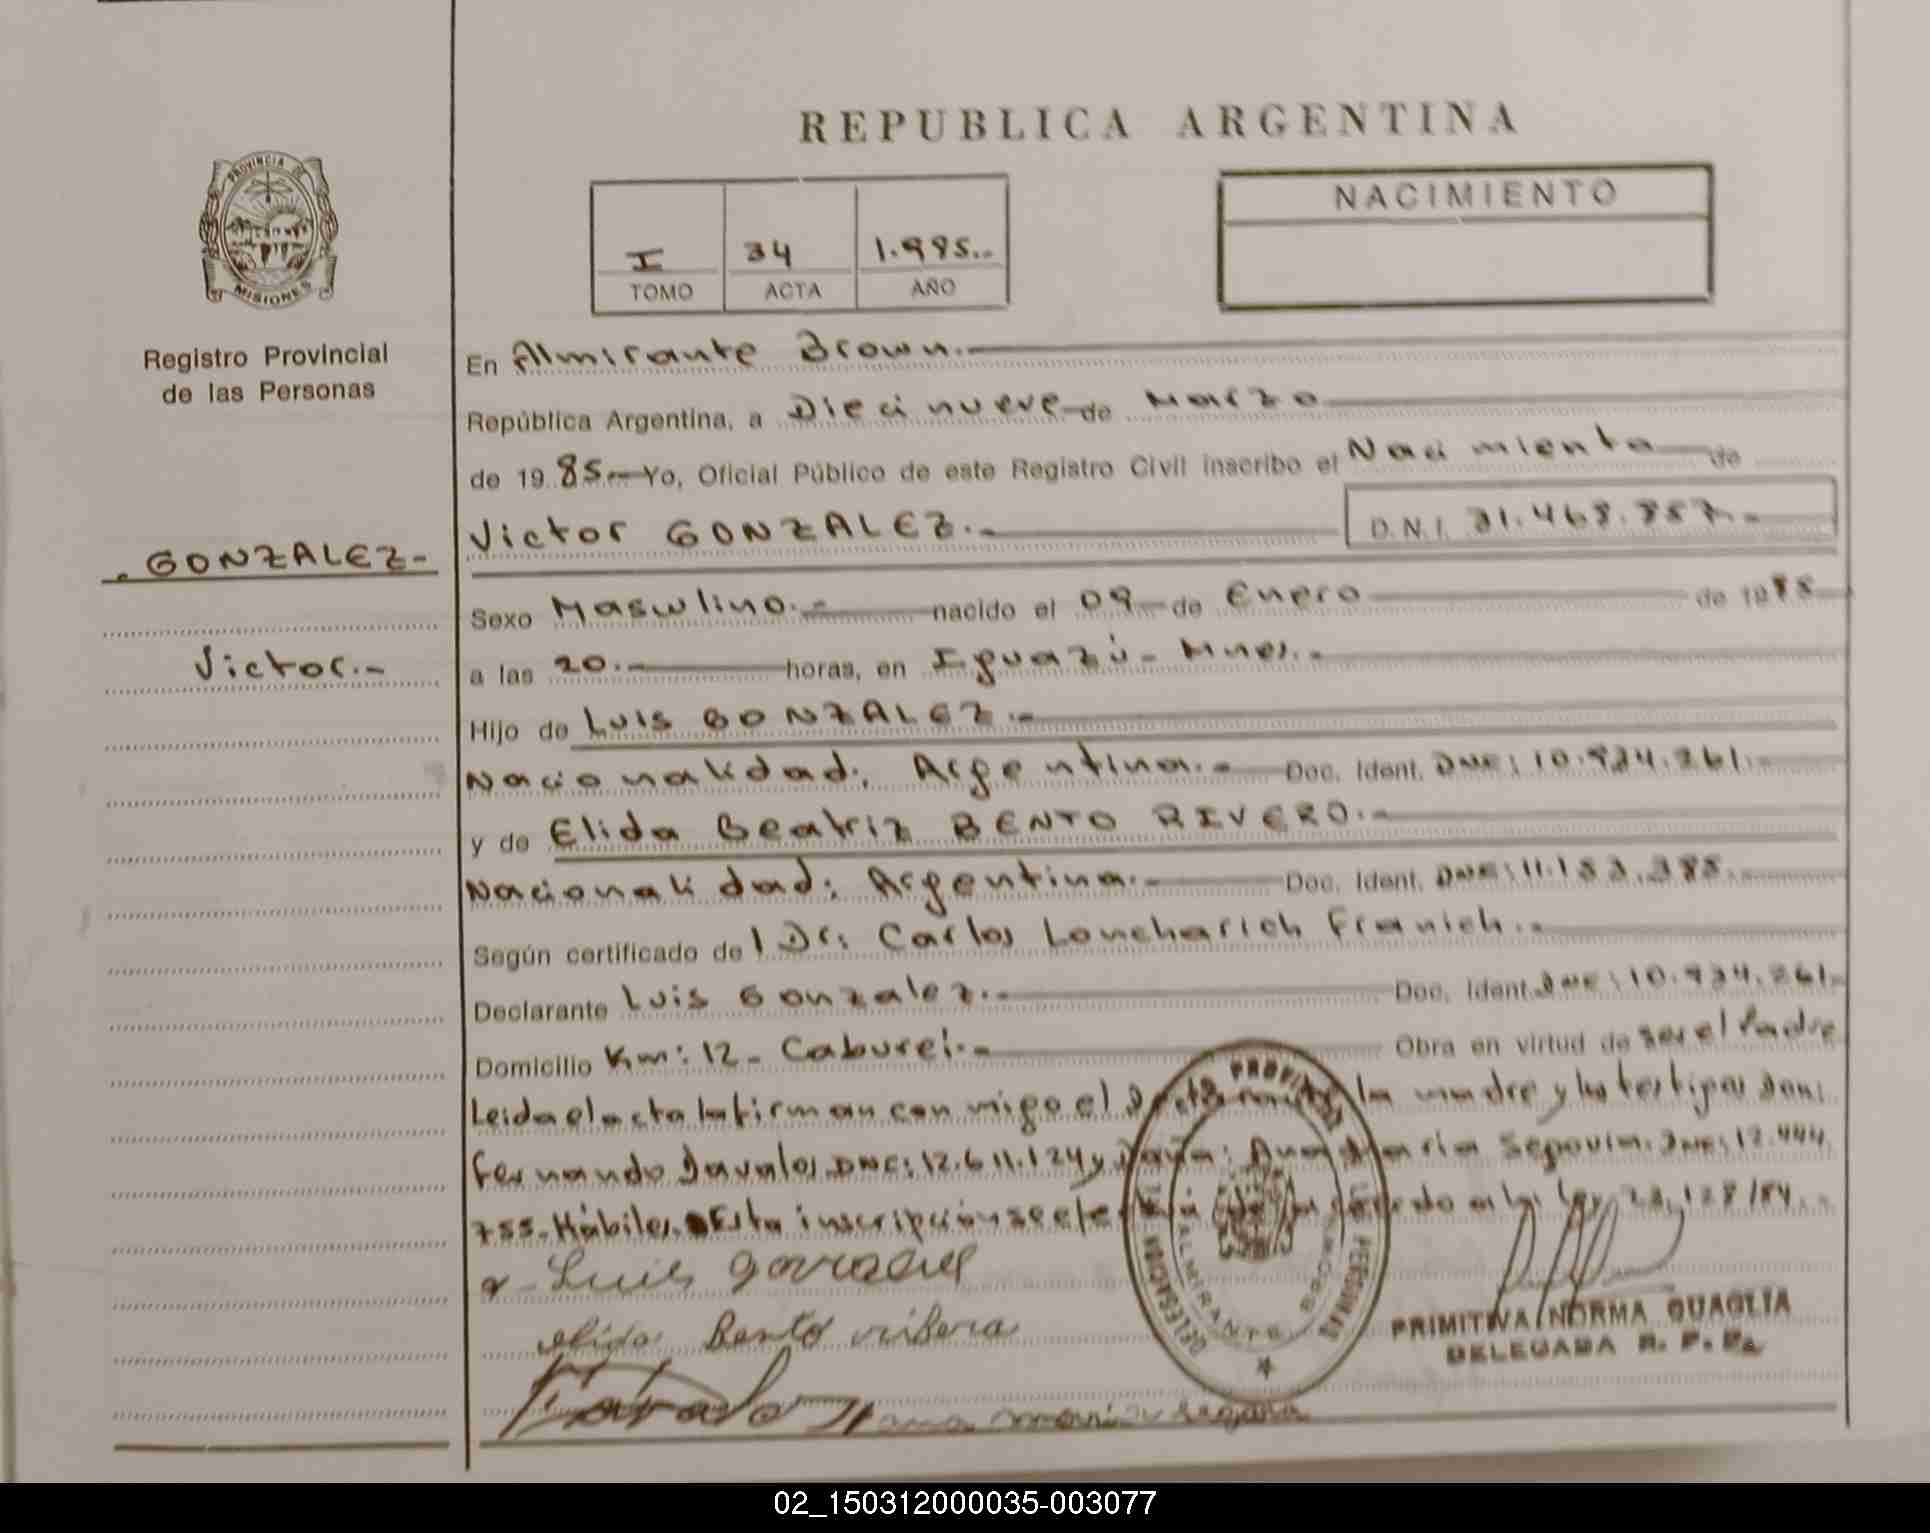 REPUBLICA ARGENTINA
PROVINCIA DE
MISIONES
Registro Provincial
de las Personas
GONZALEZ-
Victor.-
I 34 1.985.-
TOMO ACTA AÑO
NACIMIENTO
En Almirante Brown.-
República Argentina, a Dieci nueve de Marzo
de 1985.- Yo, Oficial Público de este Registro Civil inscribo el Nacimiento de
Victor GONZALEZ.- D.N.I. 31.468.857.-
Sexo Masculino.- nacido el 09 de Enero de 1985
a las 20.- horas, en Iguazú - Mnes.-
Hijo de Luis GONZALEZ.-
Nacionalidad: Argentina.- Doc. Ident. DNI: 10.934.261.-
y de Elida Beatriz BENTO RIVERO.-
Nacionalidad: Argentina.- Doc. Ident. DNI: 11.153.385.
Según certificado del Dr: Carlos Loncharich Franich.-
Declarante Luis Gonzalez.- Doc. Ident. DNI: 10.934.261.-
Domicilio Km: 12 - Caburei.- Obra en virtud de ser el Padre
Leida el acta la firman con migo el la madre y los testigos Don:
Fernando Davalos DNI: 12.611.124 y Doña: Ana Maria Segovia. DNI: 12.444.
755.- Hábiles. Esta inscripción se de acuerdo a la Ley 23.128/84.-
Luis gonzalez
elida Bento ribera
ana maria segovia
DELEGACION ALMIRANTE BROWN
PRIMITIVA NORMA QUAGLIA
DELEGADA R. P. P.
02_150312000035-003077